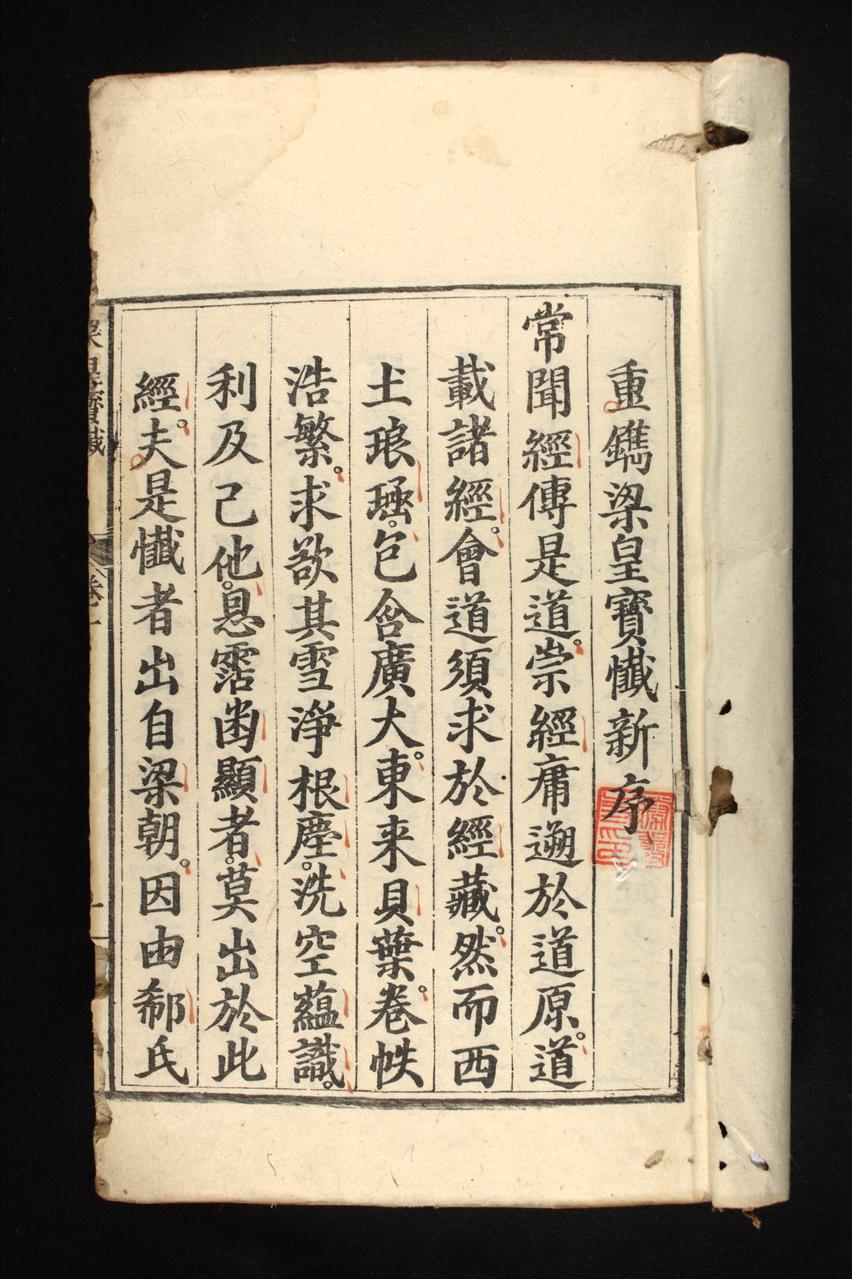 重鐫梁皇寶懺新序
常聞經傳是道。崇經庸遡於道原。道
載諸經。會道須求於經藏。然而西
土琅𤧚。包含廣大。東来貝葉。卷帙
浩繁。求欲其雪淨根塵。洗空蘊識。
利及己他。恩霑幽顯者。莫出於此
經。夫是懺者出自梁朝。因由郗氏
梁皇寶懺
卷一